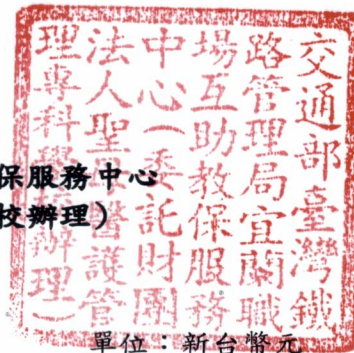 交通部臺灣鐵
路管理局宜蘭職
場互助教保服務
中心(委託財團
法人聖母醫護管
理專科學校辦理)
保服務中心
校辦理)
單位：新台幣元